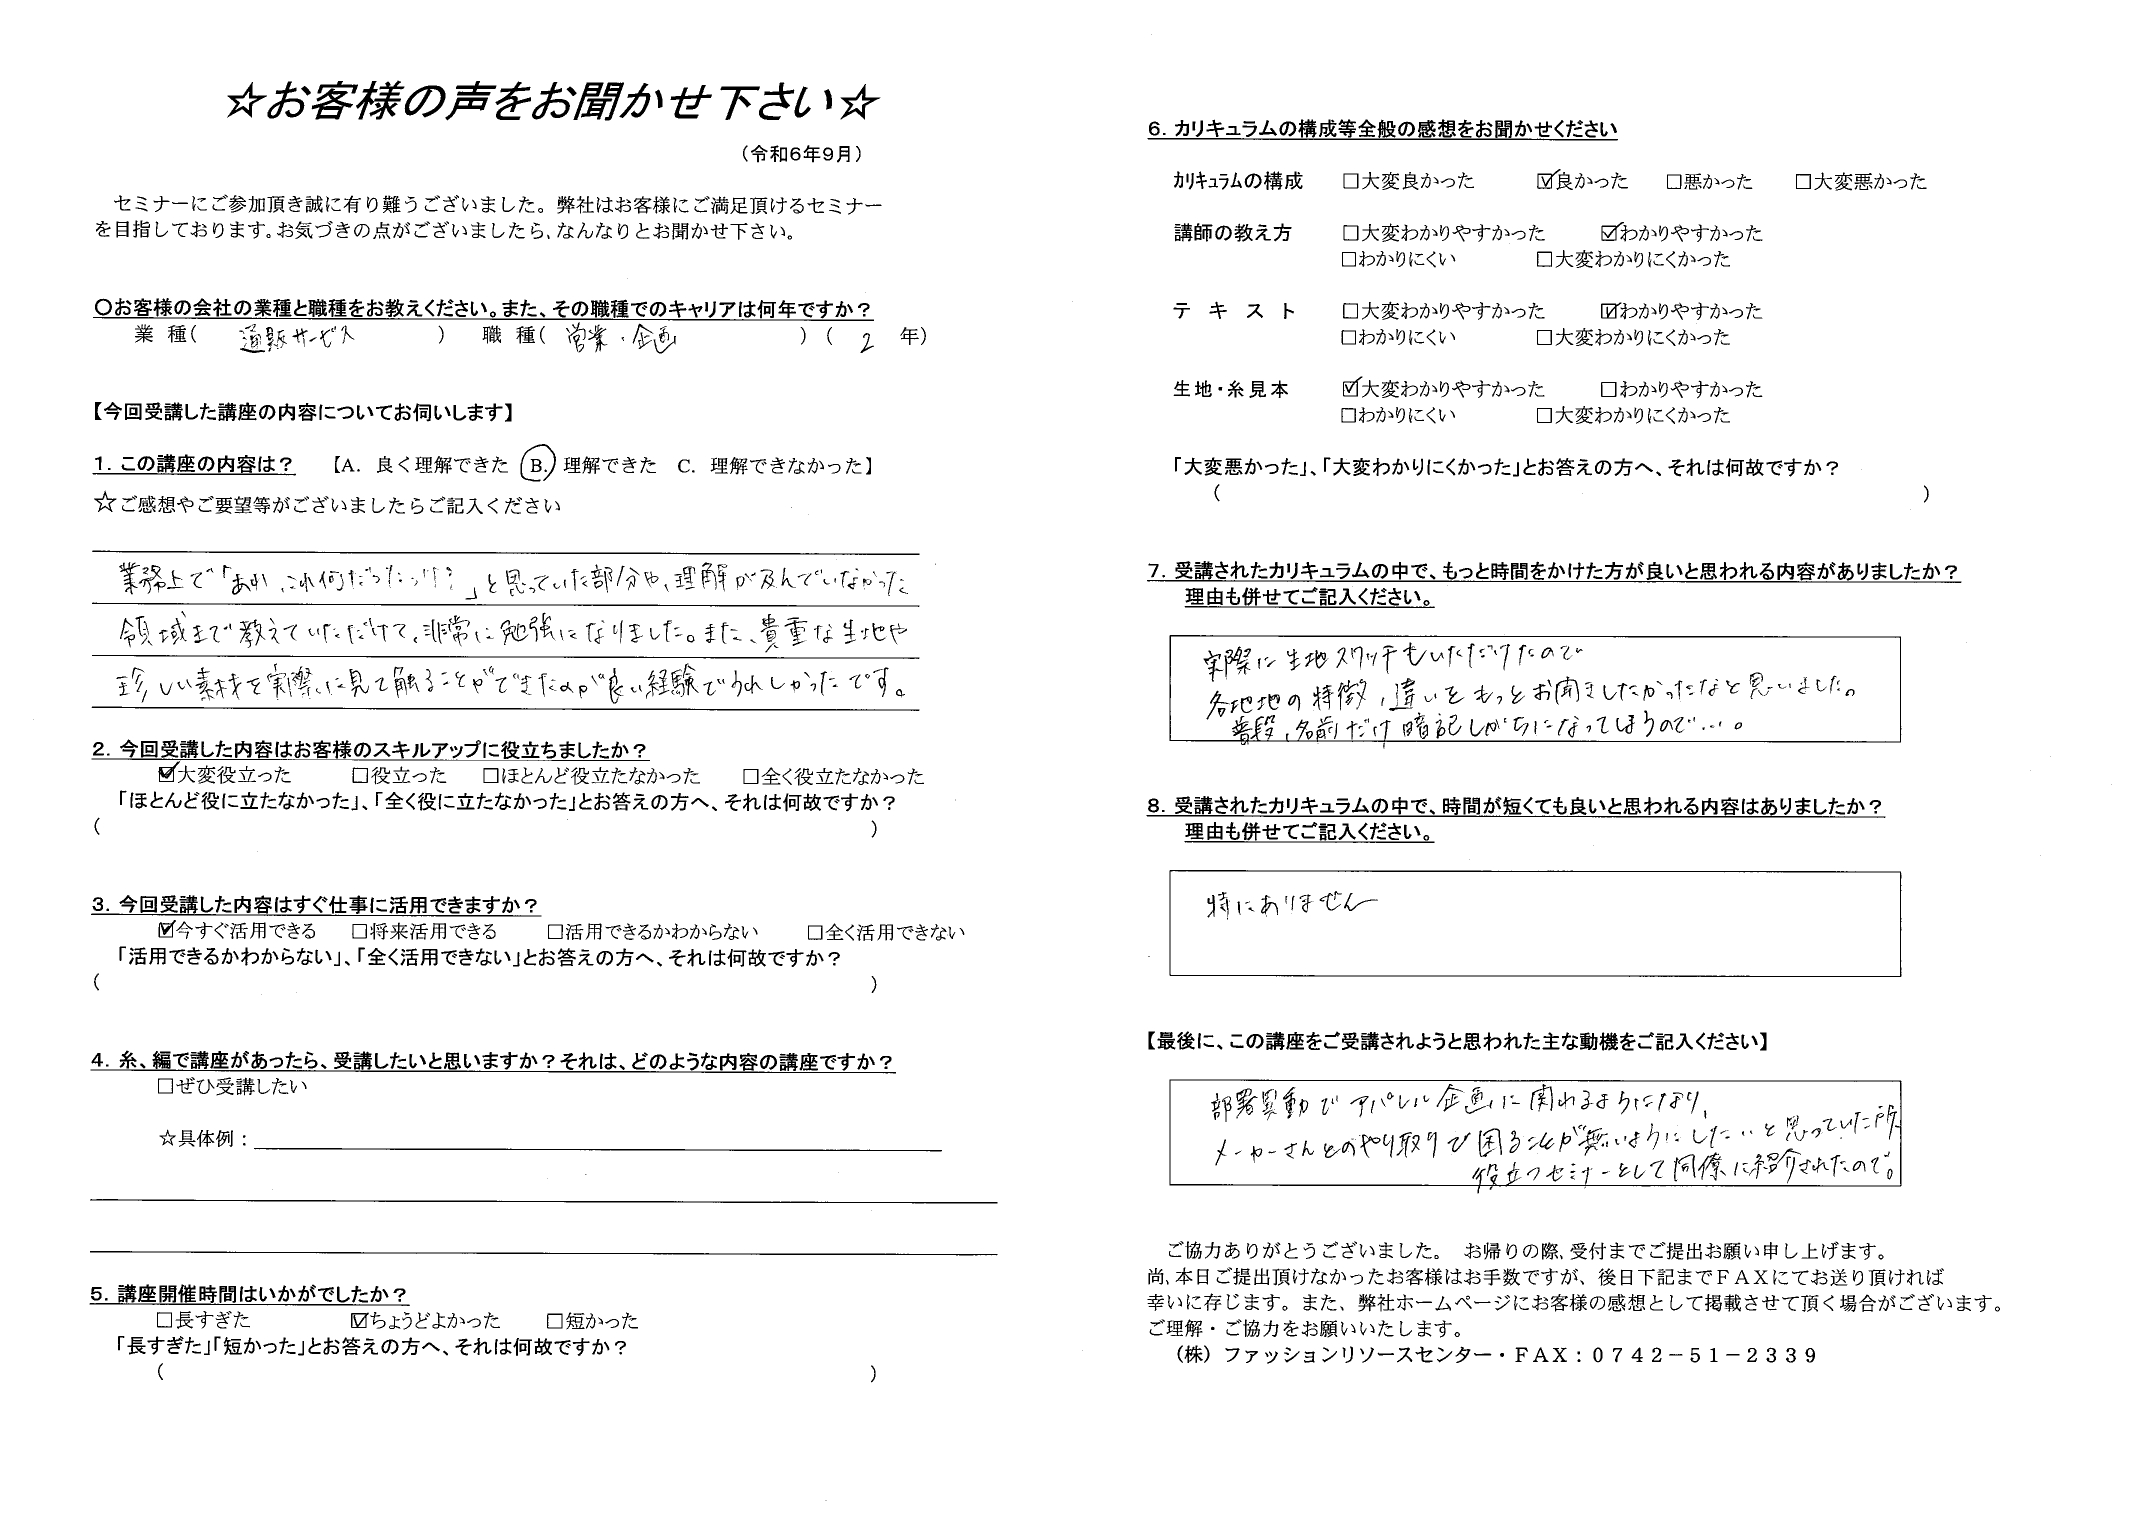 ☆お客様の声をお聞かせ下さい☆
（令和6年9月）
セミナーにご参加頂き誠に有り難うございました。弊社はお客様にご満足頂けるセミナー
を目指しております。お気づきの点がございましたら、なんなりとお聞かせ下さい。
〇お客様の会社の業種と職種をお教えください。また、その職種でのキャリアは何年ですか？
業 種（ 通販サービス ） 職 種（ 営業・企画 ）（ 2 年）
【今回受講した講座の内容についてお伺いします】
1. この講座の内容は？ 【A. 良く理解できた B. 理解できた C. 理解できなかった】
☆ご感想やご要望等がございましたらご記入ください
業務上で「あれ、これ何だったっけ？」と思っていた部分や、理解が及んでいなかった
領域まで教えていただけて、非常に勉強になりました。また、貴重な生地や
珍しい素材を実際に見て触ることができたのが良い経験でうれしかったです。
2. 今回受講した内容はお客様のスキルアップに役立ちましたか？
☑大変役立った □役立った □ほとんど役立たなかった □全く役立たなかった
「ほとんど役に立たなかった」、「全く役に立たなかった」とお答えの方へ、それは何故ですか？
（ ）
3. 今回受講した内容はすぐ仕事に活用できますか？
☑今すぐ活用できる □将来活用できる □活用できるかわからない □全く活用できない
「活用できるかわからない」、「全く活用できない」とお答えの方へ、それは何故ですか？
（ ）
4. 糸、編で講座があったら、受講したいと思いますか？それは、どのような内容の講座ですか？
□ぜひ受講したい
☆具体例：
5. 講座開催時間はいかがでしたか？
□長すぎた ☑ちょうどよかった □短かった
「長すぎた」「短かった」とお答えの方へ、それは何故ですか？
（ ）
6. カリキュラムの構成等全般の感想をお聞かせください
カリキュラムの構成 □大変良かった ☑良かった □悪かった □大変悪かった
講師の教え方 □大変わかりやすかった ☑わかりやすかった
□わかりにくい □大変わかりにくかった
テ キ ス ト □大変わかりやすかった ☑わかりやすかった
□わかりにくい □大変わかりにくかった
生地・糸見本 ☑大変わかりやすかった □わかりやすかった
□わかりにくい □大変わかりにくかった
「大変悪かった」、「大変わかりにくかった」とお答えの方へ、それは何故ですか？
（ ）
7. 受講されたカリキュラムの中で、もっと時間をかけた方が良いと思われる内容がありましたか？
理由も併せてご記入ください。
実際に生地スワッチもいただけたので
各地地の特徴、違いをもっとお聞きしたかったなと思いました。
普段、名前だけ暗記しがちになってしまうので…。
8. 受講されたカリキュラムの中で、時間が短くても良いと思われる内容はありましたか？
理由も併せてご記入ください。
特にありません
【最後に、この講座をご受講されようと思われた主な動機をご記入ください】
部署異動でアパレル企画に関わるようになり、
メーカーさんとのやり取りで困ることが無いようにしたいと思っていた所、
役立つセミナーとして同僚に紹介されたので。
ご協力ありがとうございました。 お帰りの際、受付までご提出お願い申し上げます。
尚、本日ご提出頂けなかったお客様はお手数ですが、後日下記までＦＡＸにてお送り頂ければ
幸いに存じます。また、弊社ホームページにお客様の感想として掲載させて頂く場合がございます。
ご理解・ご協力をお願いいたします。
（株）ファッションリソースセンター・ＦＡＸ：０７４２－５１－２３３９